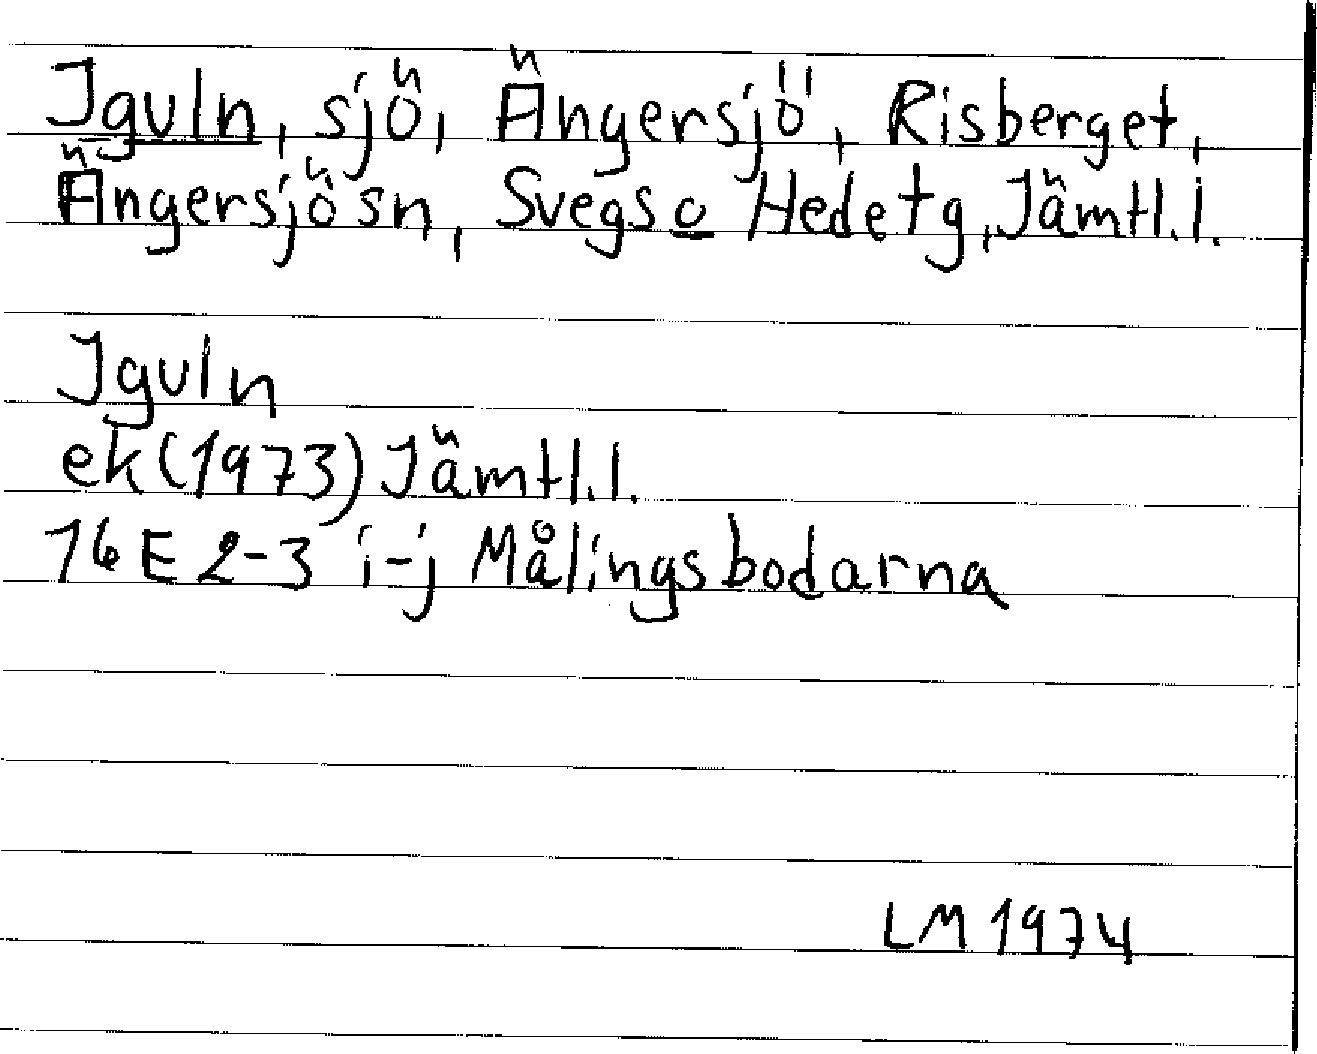 Iguln, sjö, Ängersjö, Risberget,
Ängersjösn, Svegs o Hede tg, Jämtl.l.
Iguln
ek (1973) Jämtl.l.
16E 2-3 i-j Målingsbodarna
LM 1974